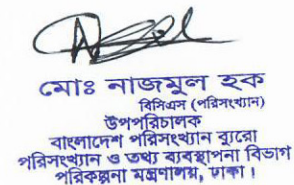 মোঃ নাজমুল হক
বিসিএস (পরিসংখ্যান)
উপপরিচালক
বাংলাদেশ পরিসংখ্যান ব্যুরো
পরিসংখ্যান ও তথ্য ব্যবস্থাপনা বিভাগ
পরিকল্পনা মন্ত্রণালয়, ঢাকা।